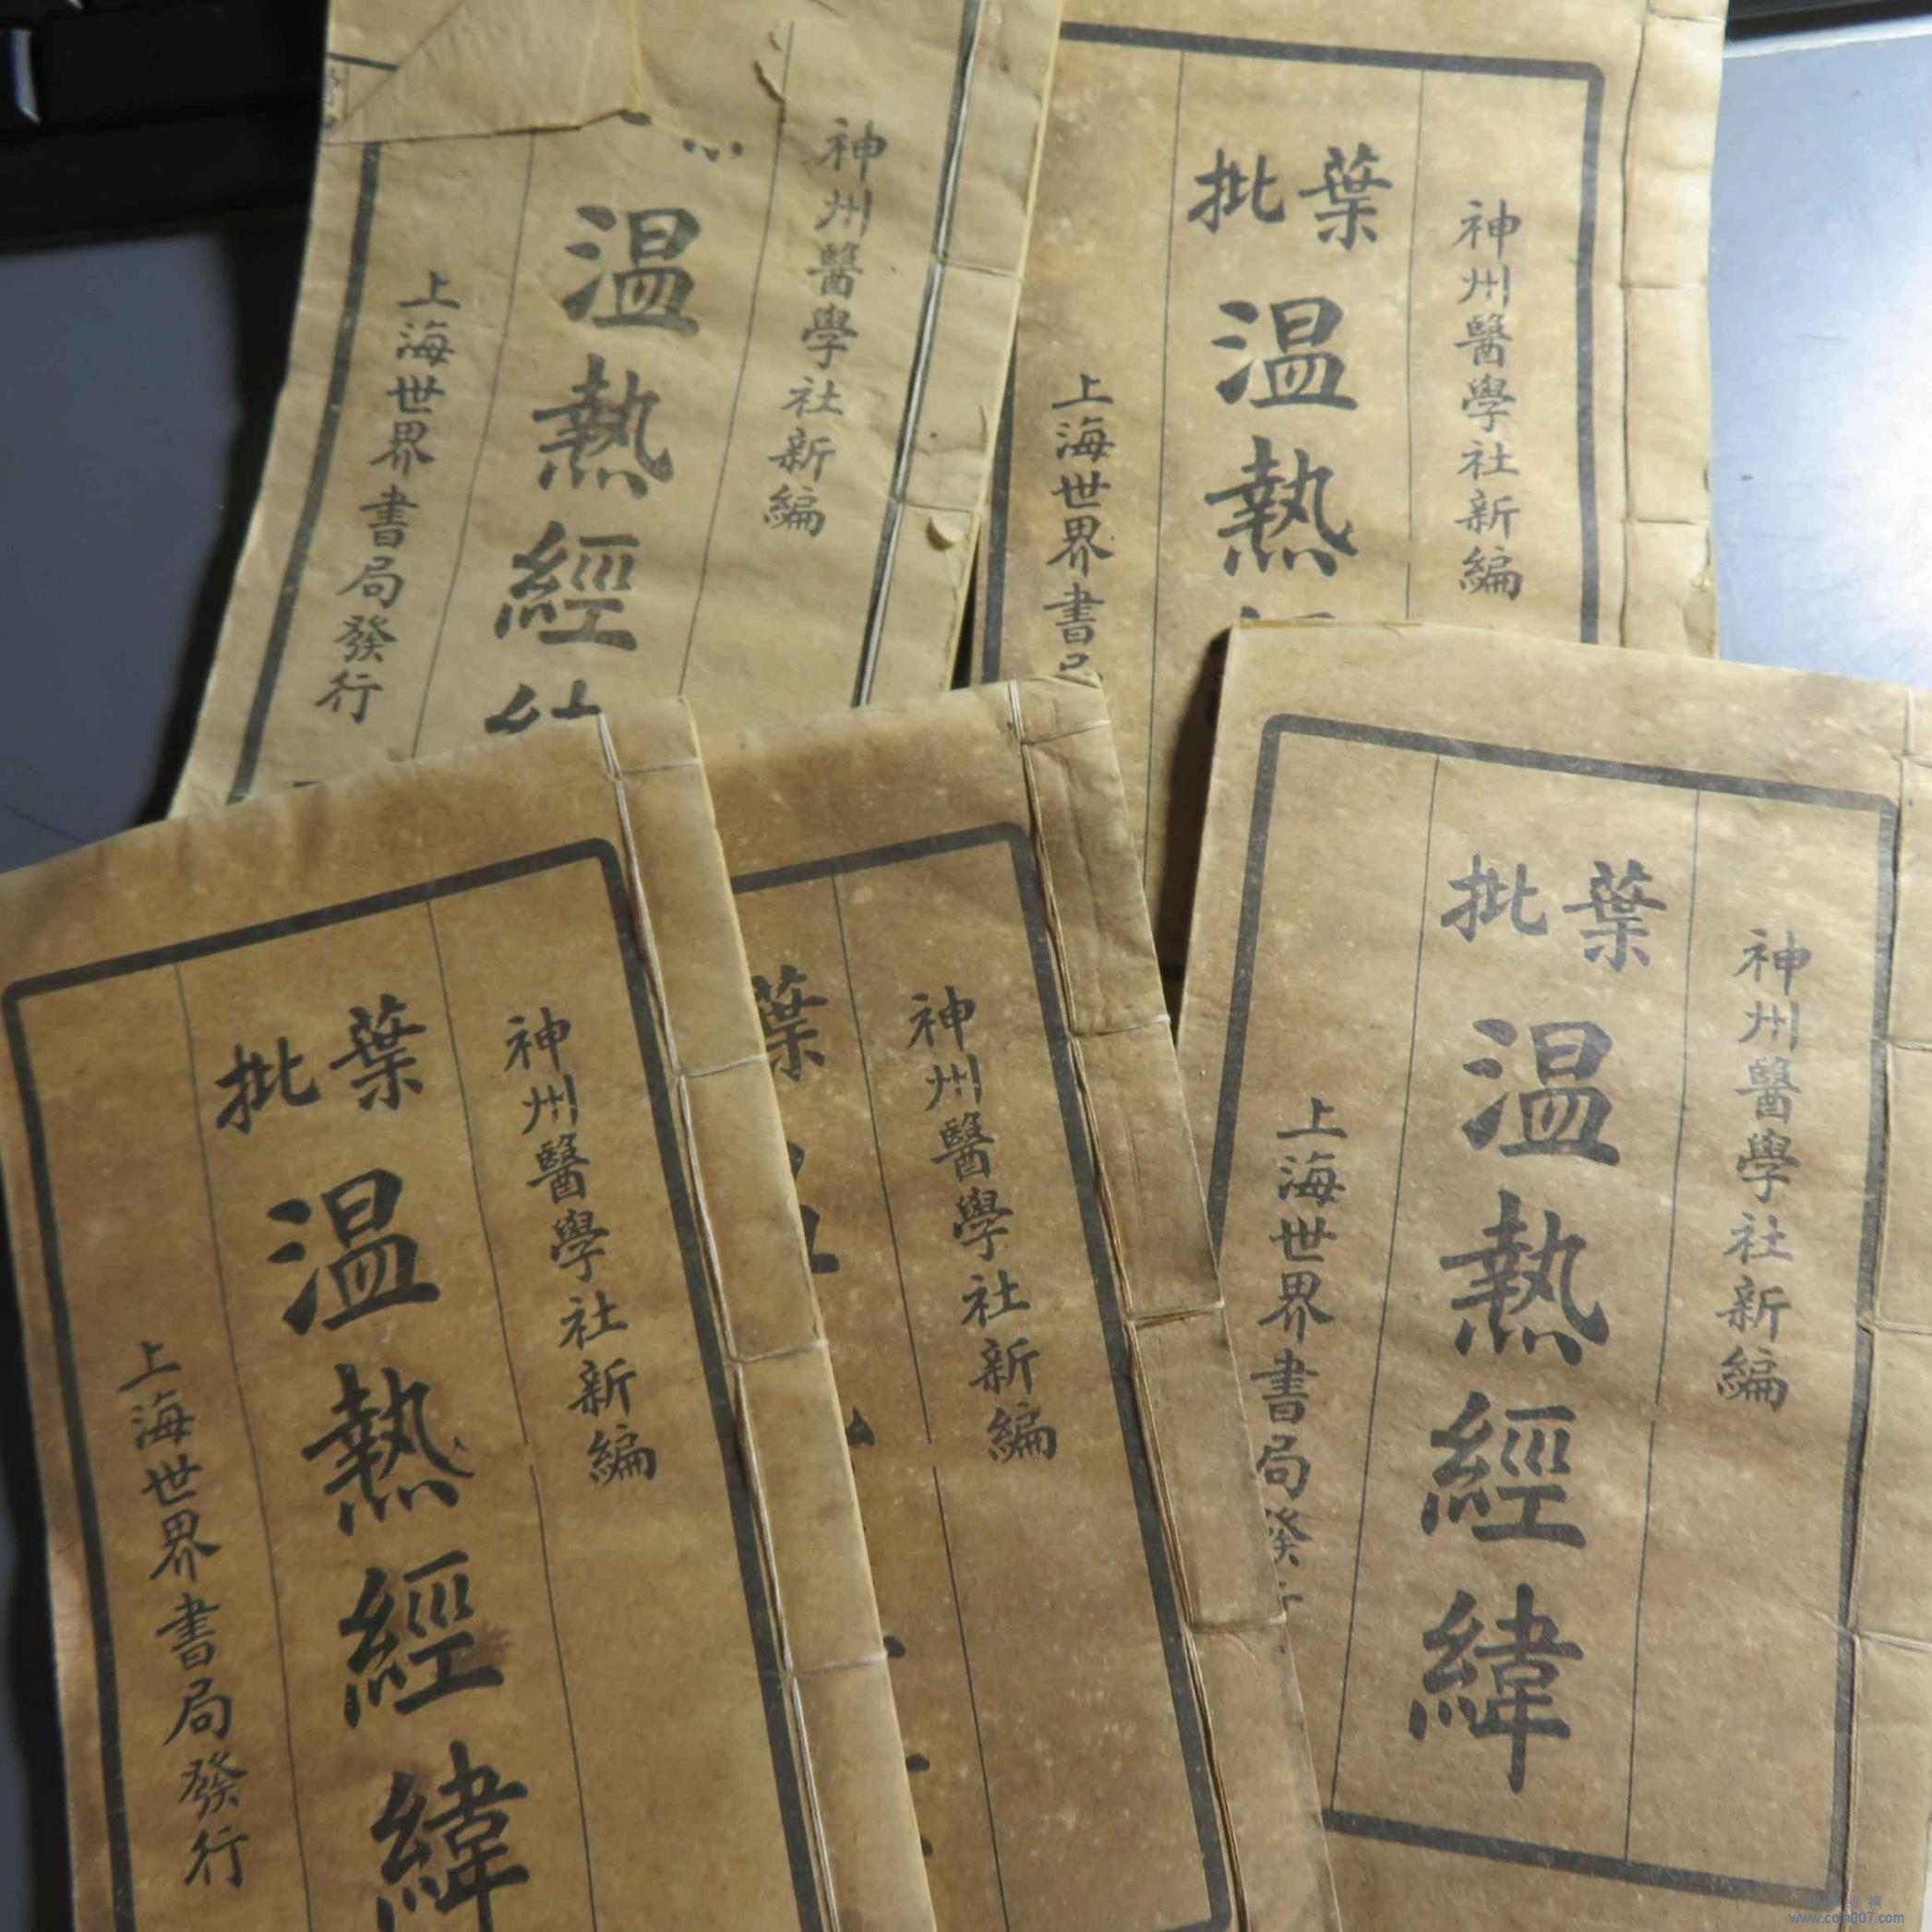 神州醫學社新編
温熱經
上海世界書局發行
神州醫學社新編
葉批
温熱
上海世界書
神州醫學社新編
葉批
温熱經緯
上海世界書局發行
神州醫學社新編
葉
神州醫學社新編
葉批
温熱經緯
上海世界書局發
www.coin007.com